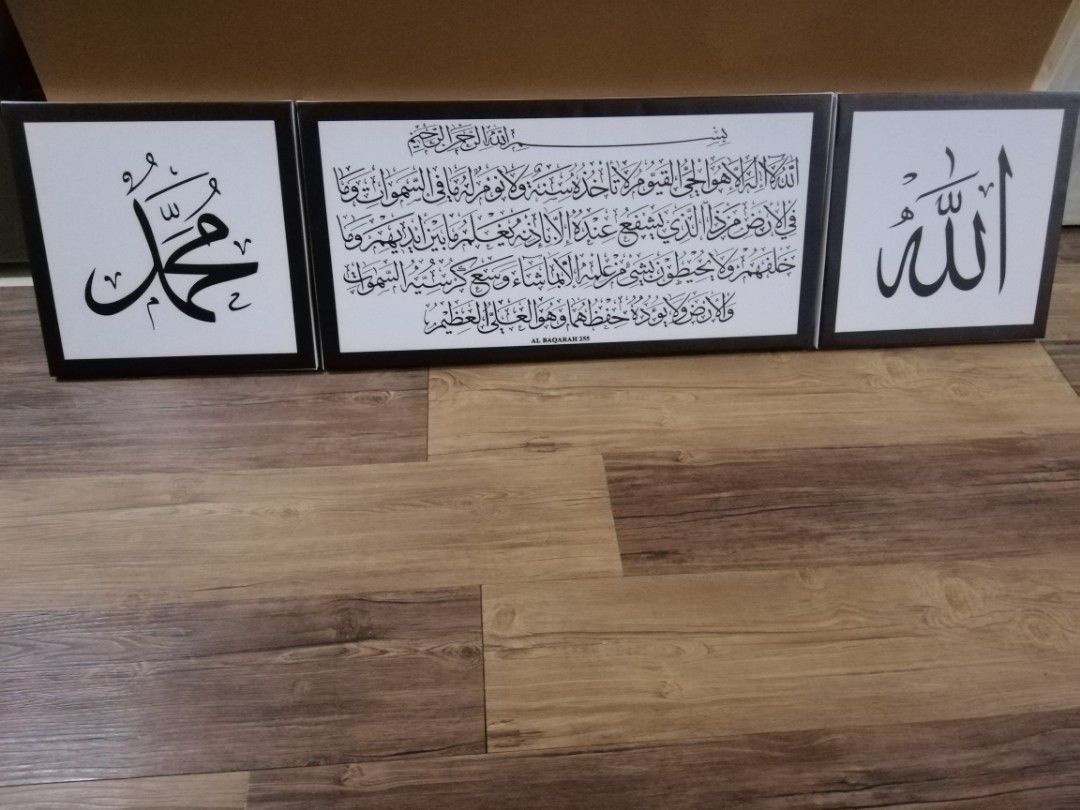 الله
بسم الله الرحمن الرحيم
الله لا إله إلا هو الحي القيوم لا تأخذه سنة ولا نوم له ما في السموات وما
في الأرض من ذا الذي يشفع عنده إلا بإذنه يعلم ما بين أيديهم وما
خلفهم ولا يحيطون بشيء من علمه إلا بما شاء وسع كرسيه السموات
والأرض ولا يؤده حفظهما وهو العلي العظيم
AL BAQARAH 255
محمد